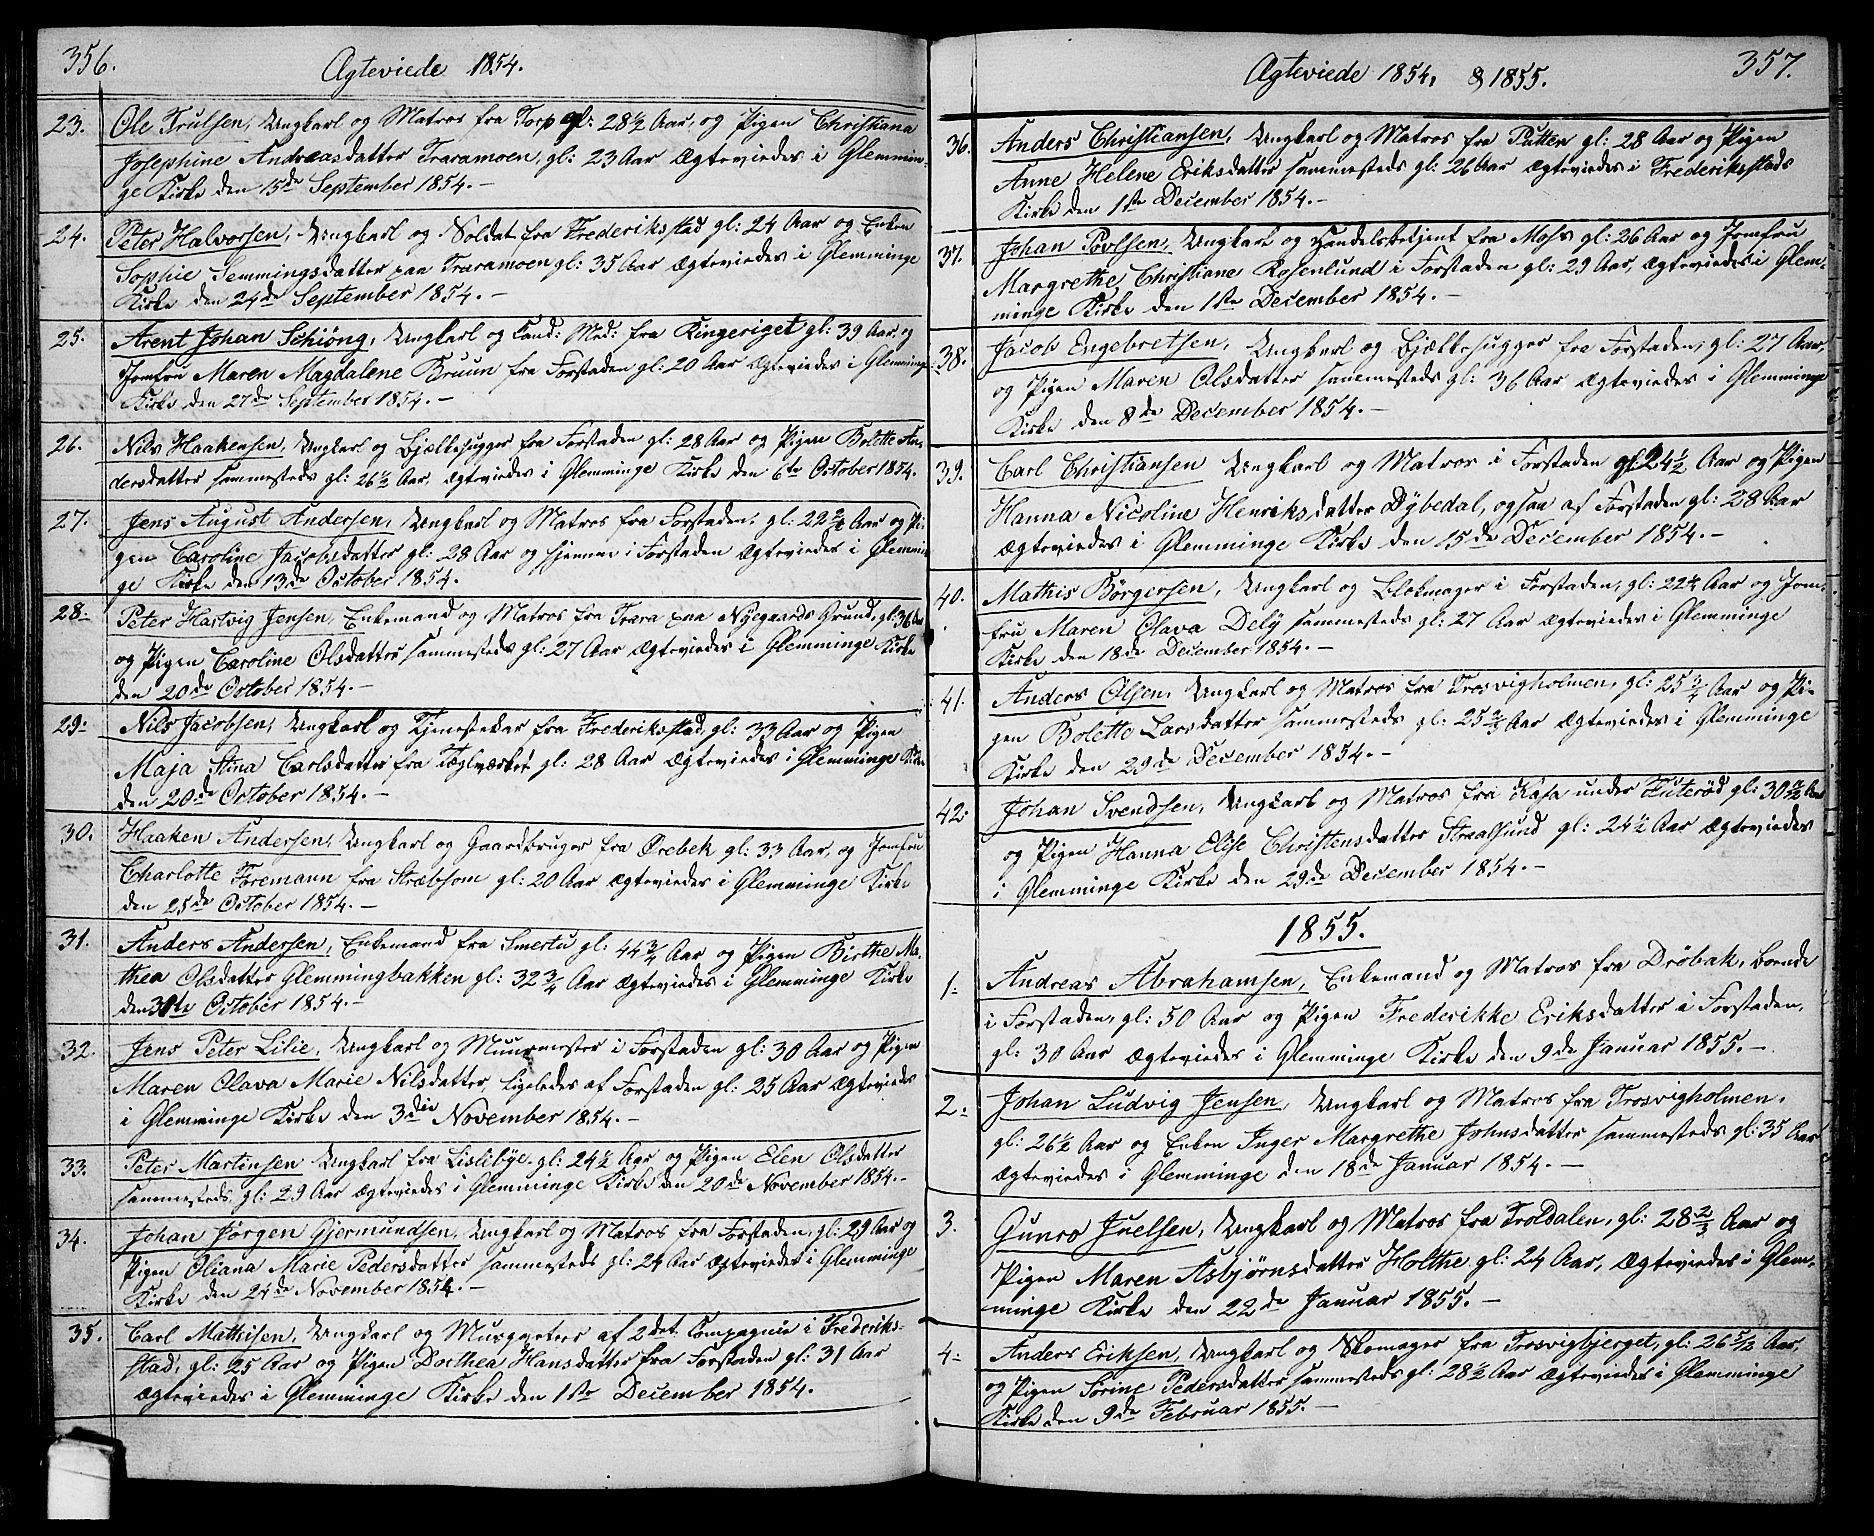 356.
Ægteviede 1854.
23. Ole Trulsen, Ungkarl og Matros fra Torp gl: 28½ Aar, og Pigen Christiana
Josephine Andreasdatter Traramoen, gl: 23 Aar Ægteviedes i Glemmin-
ge Kirke den 15de September 1854.-
24. Peter Halvorsen, Ungkarl og Soldat fra Frederiksstad gl: 24 Aar og Enken
Sophie Semmingsdatter paa Traramoen gl: 35 Aar Ægteviedes i Glemminge
Kirke den 24de September 1854.-
25. Arent Johan Schiöng, Ungkarl og Cand: Med: fra Ringeriget gl: 39 Aar, og
Jomfru Maren Magdalene Bruun fra Forstaden gl: 20 Aar Ægteviedes i Glemminge
Kirke den 27de September 1854.-
26. Nils Haakensen, Ungkarl og Bjælkehugger fra Forstaden gl: 28 Aar og Pigen Bolette An-
dersdatter sammesteds gl: 26½ Aar, Ægteviedes i Glemminge Kirke den 6te October 1854.
27. Jens August Andersen, Ungkarl og Matros fra Forstaden, gl: 22 Aar og Pi-
gen Caroline Jacobsdatter gl: 28 Aar og hjemme i Forstaden Ægteviedes i Glemmin-
ge Kirke den 13de October 1854.
28. Peter Hartvig Jensen, Enkemand og Matros fra Trara paa Nygaards Grund, gl: 36 Aar
og Pigen Caroline Olsdatter sammesteds gl: 27 Aar Ægteviedes i Glemminge Kirke
den 20de October 1854.-
29. Nils Jacobsen, Ungkarl og Tjenestekar fra Frederiksstad, gl: 33 Aar og Pigen
Maja Stina Carlsdatter fra Tæglværket gl: 28 Aar Ægteviedes i Glemminge Kirke
den 20de October 1854.-
30. Haaken Andersen, Ungkarl og Gaardbruger fra Ørebek gl: 33 Aar, og Jomfru
Charlotte Foremann fra Stræbsom gl: 20 Aar Ægteviedes i Glemminge Kirke
den 25de October 1854.-
31. Anders Andersen, Enkemand fra Smertu gl: 44¾ Aar og Pigen Birthe Ma-
thea Olsdatter Glemmingbakken gl: 32¾ Aar Ægteviedes i Glemminge Kirke
den 31te October 1854.-
32. Jens Peter Lilie, Ungkarl og Muurmester i Forstaden gl: 30 Aar og Pigen
Maren Olava Marie Nilsdatter, Ligeledes af Forstaden gl: 25 Aar Ægteviedes
i Glemminge Kirke den 3die November 1854.-
33. Peter Martinsen Ungkarl fra Lislebye gl: 24½ Aar og Pigen Elen Olsdatter
sammesteds, gl: 29 Aar Ægteviedes i Glemminge Kirke den 20de November 1854.-
34. Johan Jørgen Gjermundsen, Ungkarl og Matros fra Forstaden, gl: 29 Aar og
Pigen Oliana Marie Pedersdatter sammesteds gl: 24 Aar Ægteviedes i Glemminge
Kirke den 24de November 1854.-
35. Carl Mathisen, Ungkarl og Musqueteer af 2det Compagnie i Frederiks-
stad, gl: 25 Aar og Pigen Dorthea Hansdatter fra Forstaden gl: 31 Aar
Ægteviedes i Glemminge Kirke den 1ste December 1854.
Ægteviede 1854, & 1855.
357.
36. Anders Christiansen, Ungkarl og Matros fra Putten gl: 28 Aar og Pigen
Anne Helene Eriksdatter sammesteds gl: 26 Aar Ægteviedes i Frederiksstads
Kirke den 1ste December 1854.-
37. Johan Povlsen, Ungkarl og Handelsbetjent fra Moss gl: 26 Aar og Jomfru
Margrethe Christiane Rosenlund i Forstaden gl: 29 Aar, Ægteviedes i Glem-
minge Kirke den 1ste December 1854.-
38. Jacob Engebretsen, Ungkarl og Bjælkehugger fra Forstaden, gl: 27 Aar,
og Pigen Maren Olsdatter sammesteds gl: 36 Aar, Ægteviedes i Glemminge
Kirke den 8de December 1854.-
39. Carl Christiansen Ungkarl og Matros i Forstaden gl: 24½ Aar og Pigen
Hanna Nicoline Henriksdatter Dybedal, ogsaa af Forstaden gl: 28 Aar
Ægteviedes i Glemminge Kirke den 15de December 1854.-
40. Mathis Börgersen, Ungkarl og Blokmager i Forstaden, gl: 22½ Aar og Jom-
fru Maren Olava Dely sammesteds gl: 27 Aar Ægteviedes i Glemminge
Kirke den 18de December 1854.-
41. Anders Olsen, Ungkarl og Matros fra Trosvigholmen, gl: 25¾ Aar og Pi-
gen Bolette Larsdatter sammesteds gl: 25⅔ Aar Ægteviedes i Glemminge
Kirke den 29de December 1854.-
42. Johan Svendsen, Ungkarl og Matros fra Kasa under Futeröd gl: 30½ Aar
og Pigen Hanna Elise Christensdatter Straalsund gl: 24½ Aar Ægteviedes
i Glemminge Kirke den 29de December 1854.-
1855.
1. Andreas Abrahamsen, Enkemand og Matros fra Dröbak, boende
i Forstaden, gl: 50 Aar og Pigen Frederikke Eriksdatter i Forstaden,
gl: 30 Aar Ægteviedes i Glemminge Kirke den 9de Januar 1855.-
2. Johan Ludvig Jensen, Ungkarl og Matros fra Trosvigholmen,
gl: 26½ Aar og Enken Inger Margrethe Johnsdatter sammesteds gl: 35 Aar
Ægteviedes i Glemminge den 18de Januar 1854.-
3. Gunro Juelsen, Ungkarl og Matros fra Troldalen, gl: 28⅔ Aar og
Pigen Maren Asbjørnsdatter Holthe gl: 24 Aar, Ægteviedes i Glem-
minge Kirke den 22de Januar 1855.-
4. Anders Eriksen, Ungkarl og Skomager fra Trosvigbjerget, gl: 26 5/12 Aar,
og Pigen Sorine Pedersdatter sammesteds gl: 28½ Aar Ægteviedes i Glemminge
Kirke den 9de Februar 1855.-